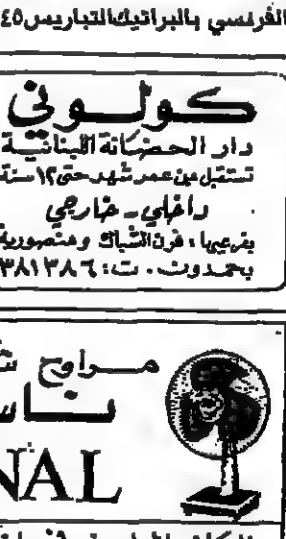 الفرنسي بالبراتيك التباريس ٤٥
كولوني
دار الحضانة اللبنانية
تستقبل من عمر شهر حتى ١٢ سنة
داخلي - خارجي
بفرعيها : فرن الشباك ومنصورية
بحمدون . ت : ٣٨١٣٨٦
مراوح
NAL